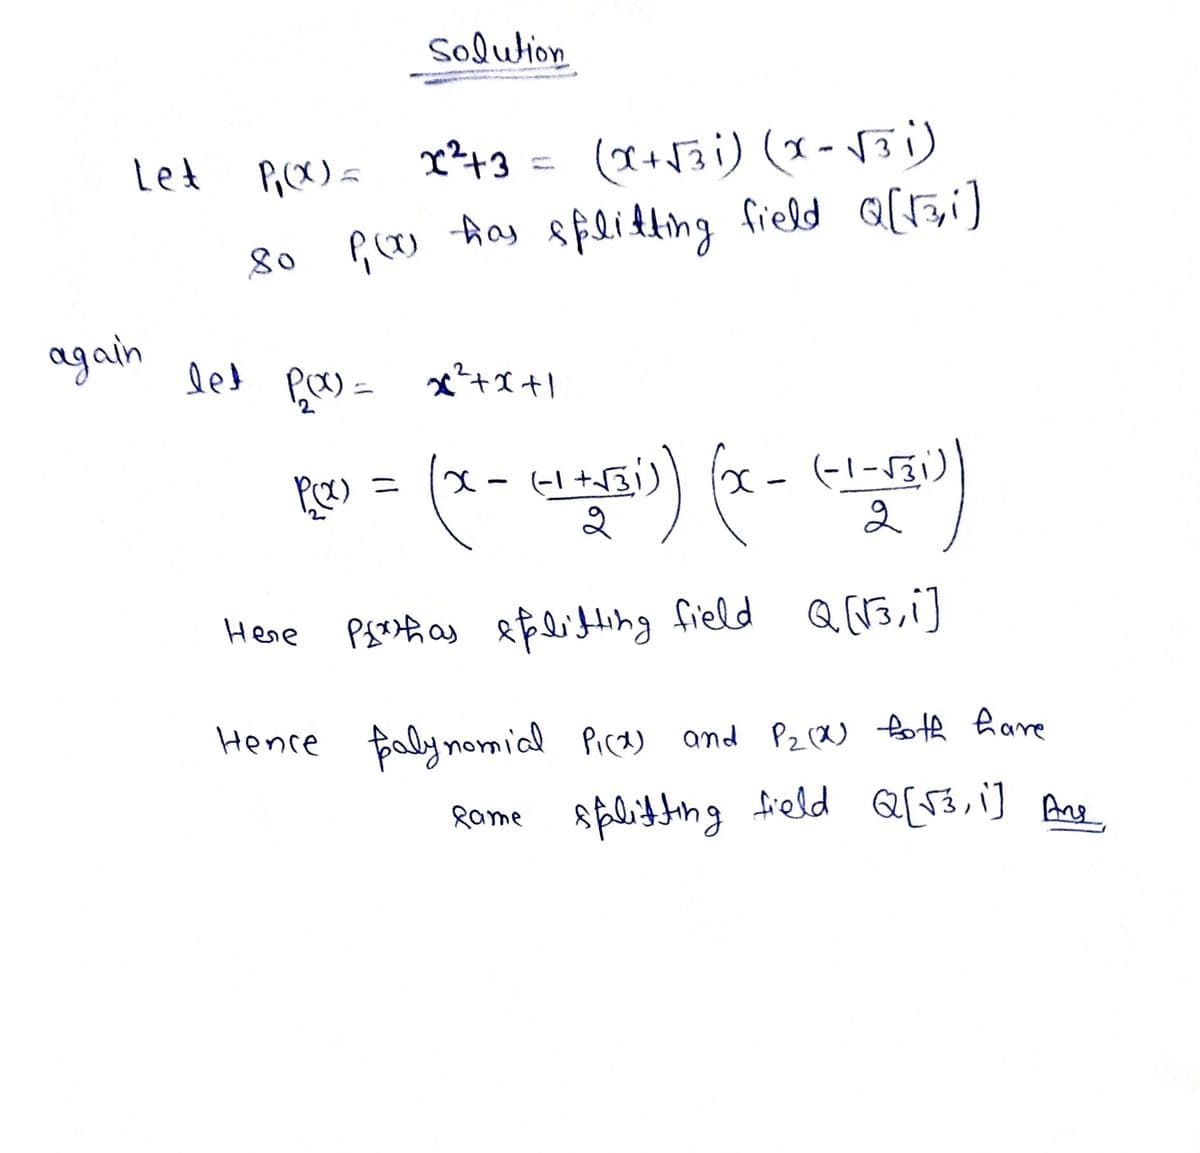 Solution
Let P₁(x) = x²+3 = (x+√3 i) (x-√3 i)
So P₁(x) has splitting field Q[√3,i]
again let P₂(x) = x²+x+1
P₂(x) = (x - (-1+√3i)/2) (x - (-1-√3i)/2)
Here P₂(x) has splitting field Q[√3,i]
Hence polynomial P₁(x) and P₂(x) both have
same splitting field Q[√3,i] Ans